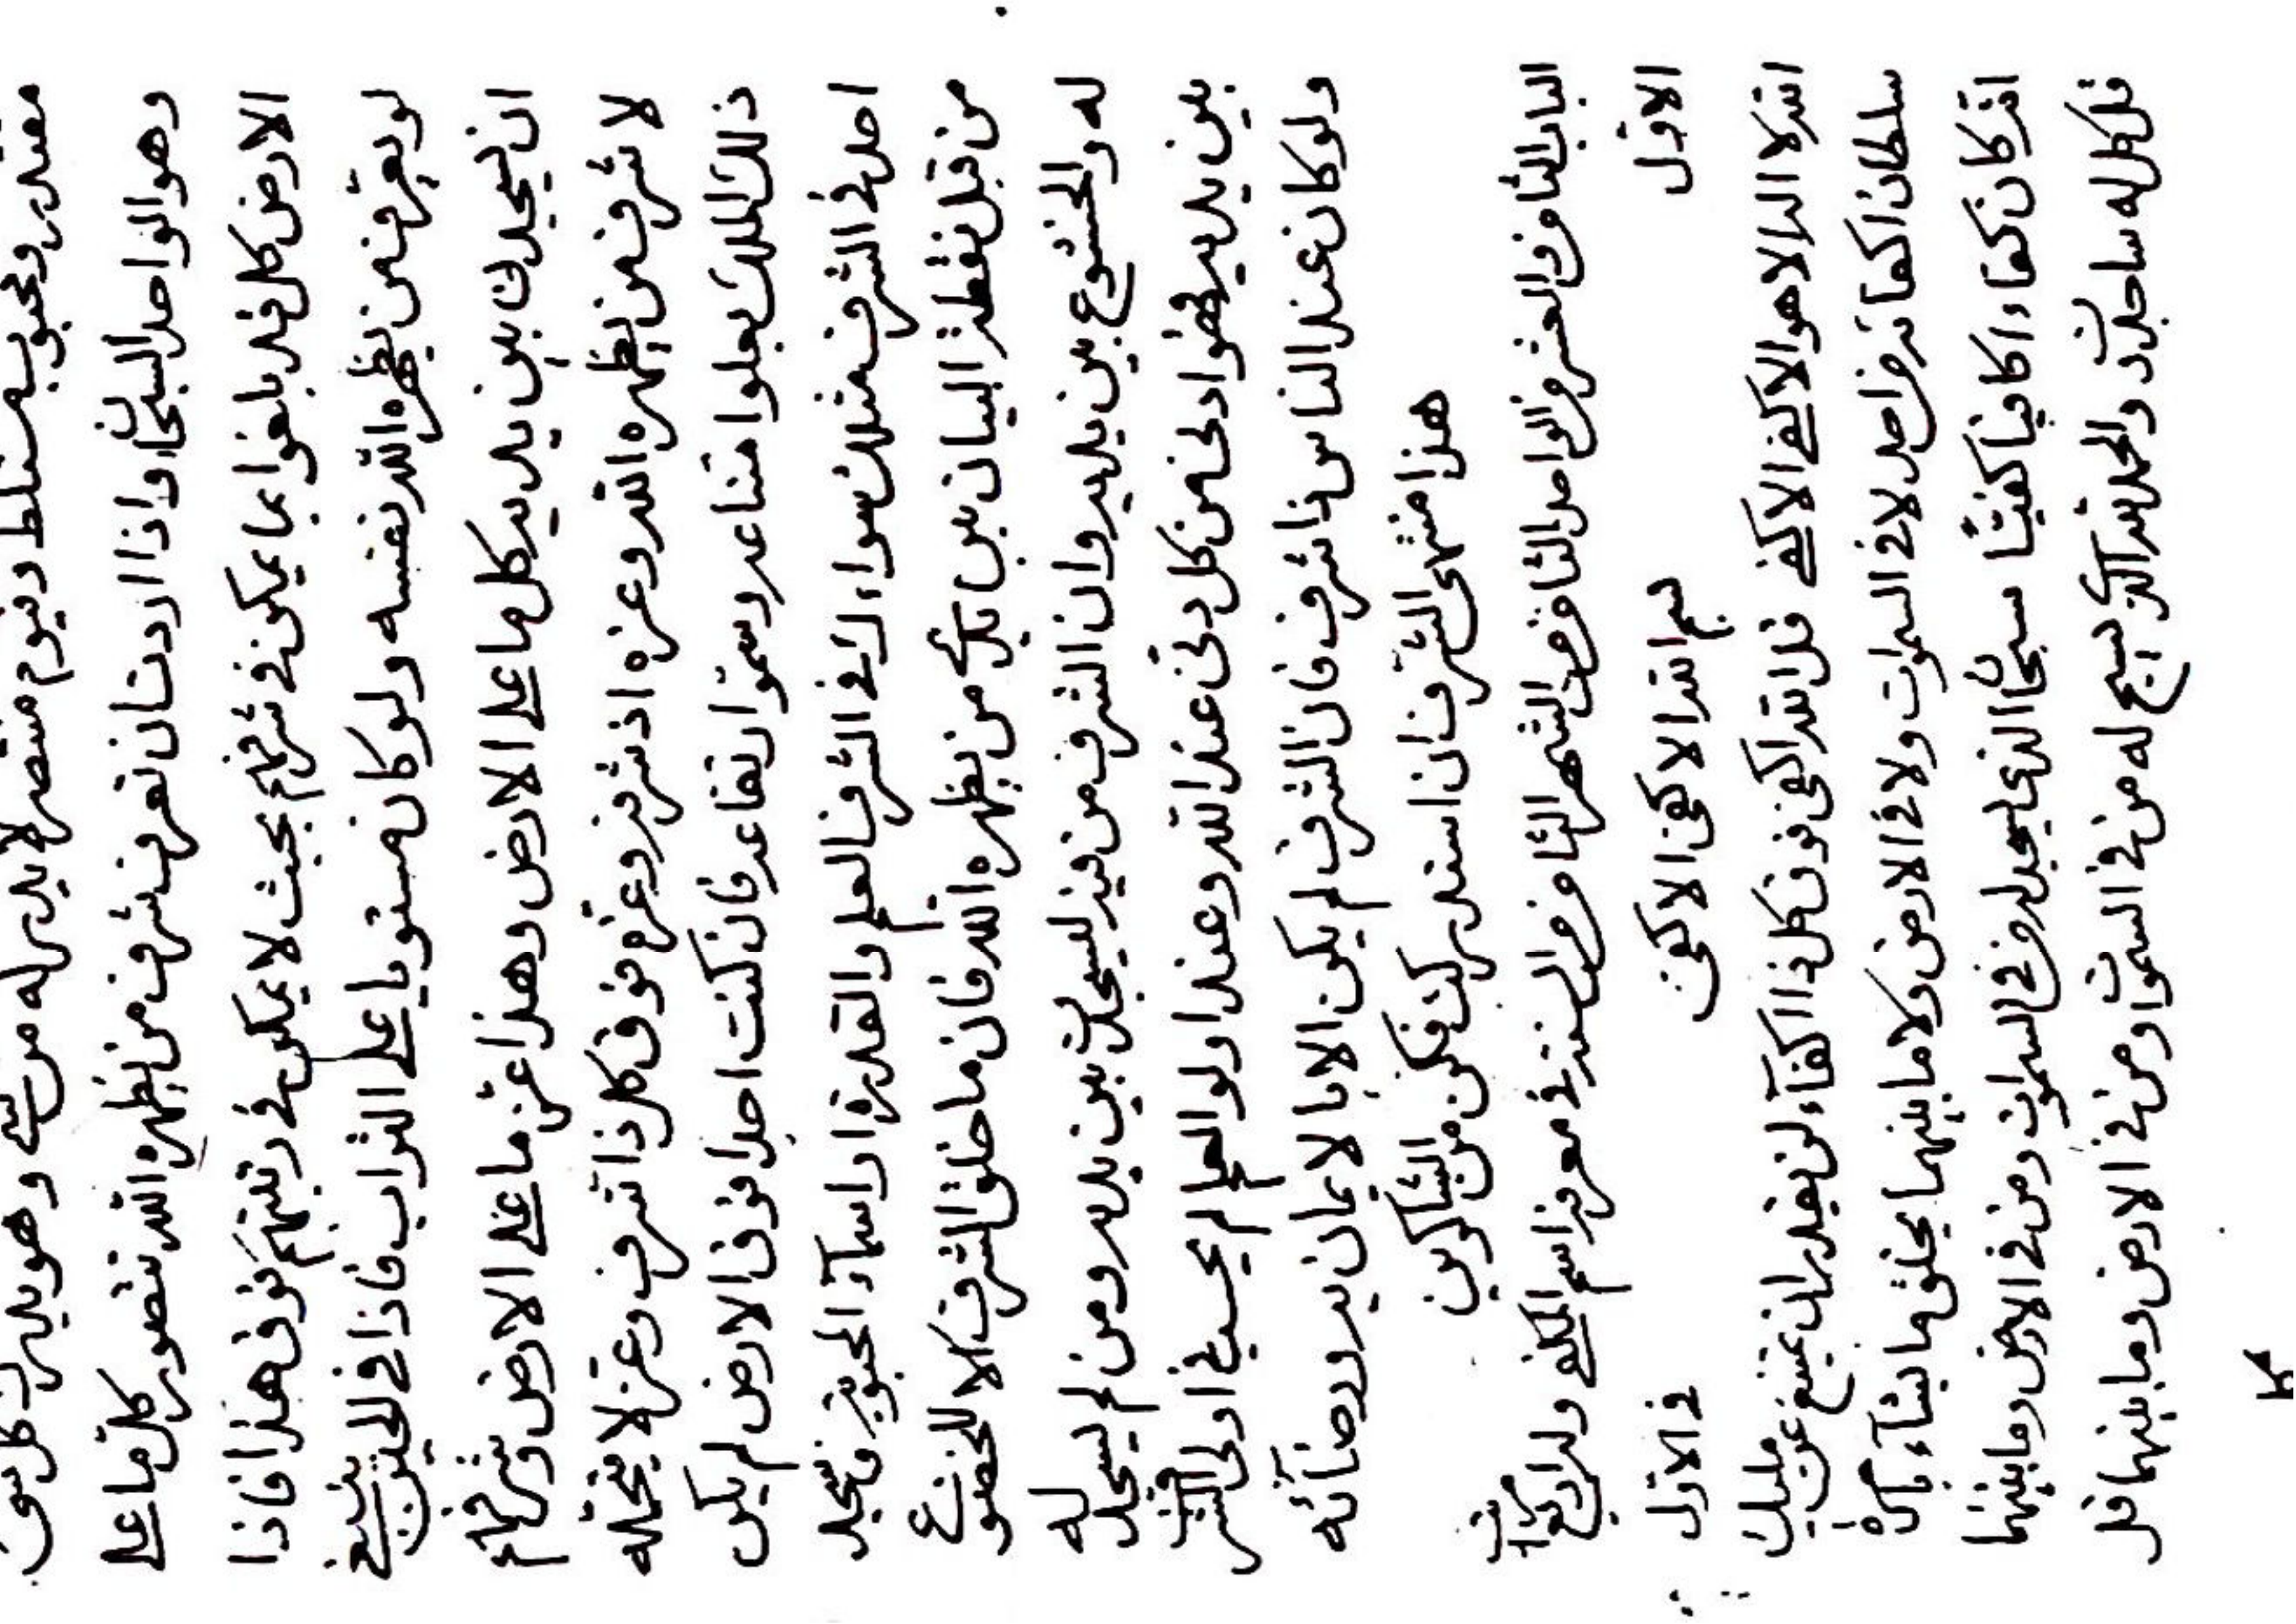 مقتدر ومحبوب متسلط وقيوم منتصر لا يدبر له من شيء وهو يدبر كل شيء
وهو الواحد السبحان واذا اردت ان تعرف شرف من يظهره الله تتصور كل ما على
الارض كل قد بلغوا بما يمكن في شرفهم بحيث لا يمكن في رتبتهم فوق هذا فاذا
لو يعرفهن من يظهره الله نفسه ولو كان مستويا على التراب فاذا في الحين ينبغي
ان يسجدن بين يديه كل ما على الارض وهذا عز ما على الارض وشرفهم
لا شرف من يظهره الله وعزه اذ شرفه وعزه فوق كل ذا شرف وعز لا يتحمله
ذلك الملك يعلوا متناعه ويسموا ارتفاعه فان كنت احدا فوق الارض لم يكن
احد في الشرف مثلك سواء كان في الشرف العلم والقدرة او اسماء المحبوبة فتجد
من قبل نقطة البيان بين يدي من يظهره الله فان ما خلق الشرف الا للخضوع
له والخشوع بين يديه وان الشرف من فيه ليسجدن بين يديه ومن لم يسجد له
بين يديه فهو ادلى من كل دنى عند الله وعند اولو العلم لم يحسب في اولى الشرف
ولو كان عند الناس ذا شرف فان الشرف لم يكن الا بالايمان به ورضائه
هذا منتهى الشرف ان استدركت فكن من الشاكرين
الباب الثامن والعشر من الواحد الثامن من الشهر الثامن من السنة في معرفة اسم المكفي وله اربع مراتب
الاول في الاول
بسم الله الاكفى الاكفى
الله لا اله الا هو الاكفى الاكفى قل الله اكفى فوق كل ذا اكفاء لن يقدر ان يمتنع عن مليك
سلطان اكفائه من احد لا في السموات ولا في الارض ولا ما بينهما يخلق ما يشاء بامره
انه كان كفاء اكافيا كفيا سبحان الذي يسجد له من في السموات ومن في الارض وما بينهما
قل كل له ساجدون والحمد لله الذي يسبح له من في السموات ومن في الارض وما بينهما قل
كل